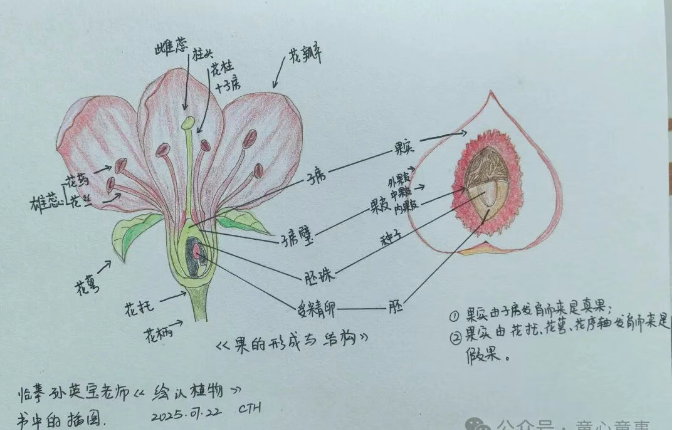 雌蕊
柱头
花柱
子房
花瓣
花药
雄蕊
花丝
花萼
花托
花柄
子房
子房壁
胚珠
受精卵
果实
果皮
外果皮
中果皮
内果皮
种子
胚
《果的形成与结构》
① 果实由子房发育而来是真果;
② 果实由花托、花萼、花序轴发育而来是
假果。
临摹孙英宝老师《绘认植物》
书中的插图. 2025.07.22 CTH
公众号 · 童心童事